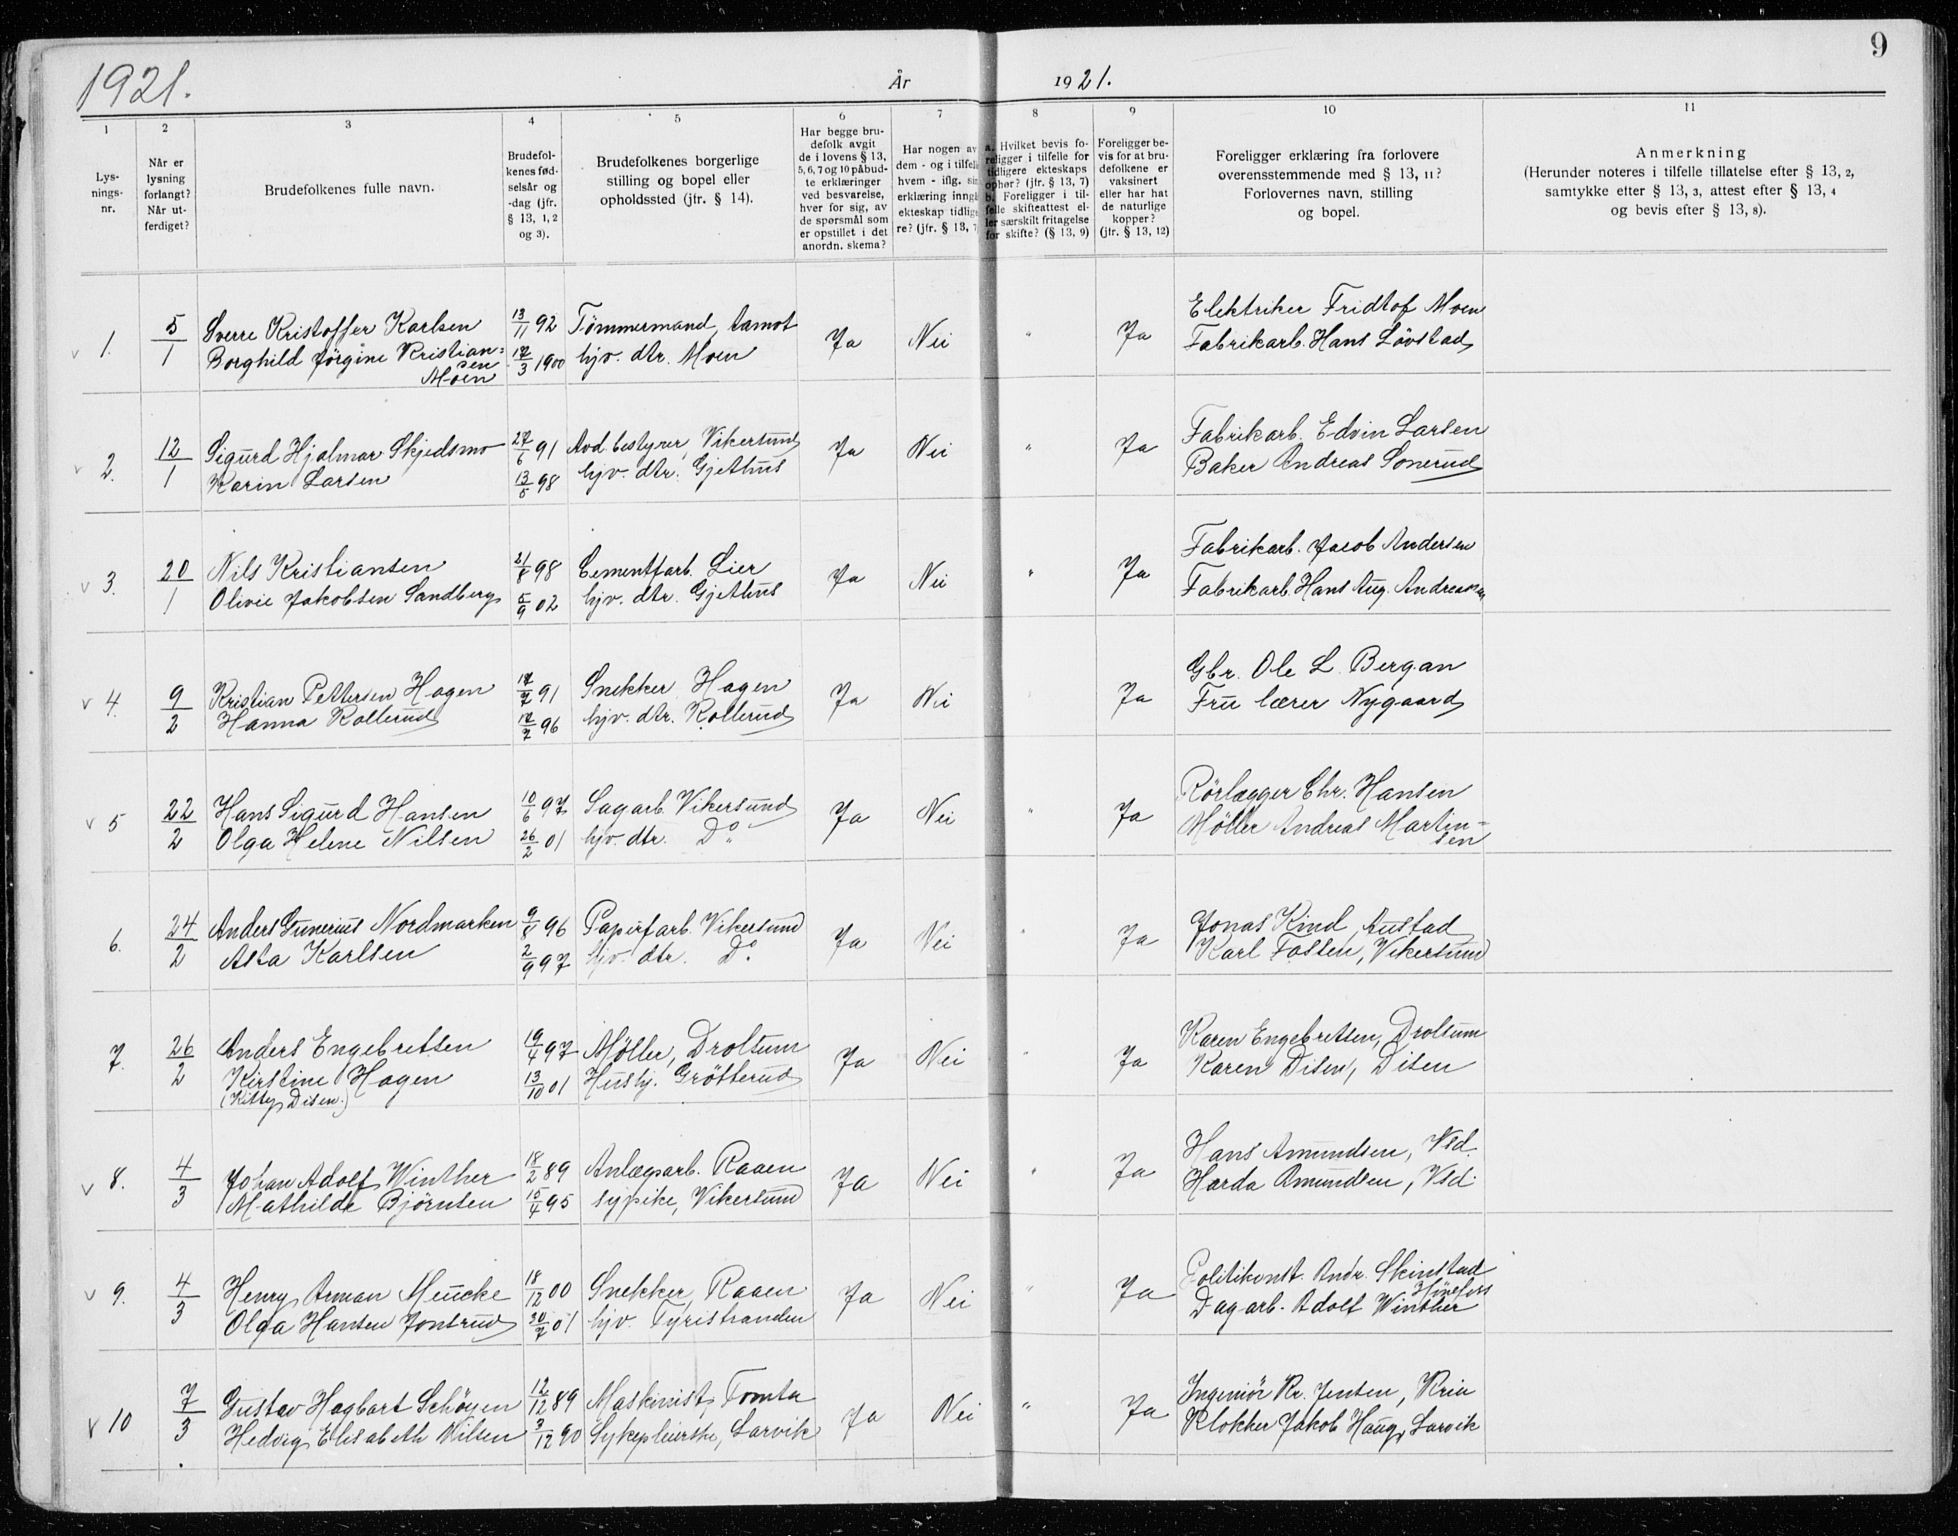 1921.
År
1921.
9
1 2 3 4 5 6 7 8 9 10 11
Lys-
nings-
nr.
Når er
lysning
forlangt?
Når ut-
ferdiget?
Brudefolkenes fulle navn.
Brudefol-
kenes fød-
selsår og
-dag (jfr.
§ 13, 1, 2
og 3).
Brudefolkenes borgerlige
stilling og bopel eller
opholdssted (jfr. § 14).
Har begge bru-
defolk avgit
de i lovens § 13,
5, 6, 7 og 10 påbud-
te erklæringer
ved besvarelse,
hver for sig, av
de spørsmål som
er opstillet i det
anordn. skema?
Har nogen av
dem - og i tilfelle
hvem - iflg. sin
erklæring inngå
ekteskap tidlige
re? (jfr. § 13, 7
a. Hvilket bevis fo-
religger i tilfelle for
tidligere ekteskaps
ophør? (jfr. § 13, 7)
b. Foreligger i til-
felle skifteattest el-
ler særskilt fritagelse
for skifte? (§ 13, 9)
Foreligger be-
vis for at bru-
defolkene er
vaksinert
eller har hat
de naturlige
kopper?
(jfr. § 13, 12)
Foreligger erklæring fra forlovere
overensstemmende med § 13, 11?
Forlovernes navn, stilling
og bopel.
Anmerkning
(Herunder noteres i tilfelle tillatelse efter § 13, 2,
samtykke efter § 13, 3, attest efter § 13, 4
og bevis efter § 13, 8).
v 1. 5/1 Sverre Kristoffer Karlsen 13/11 92 Tømmermand, Aamot Ja Nei " Ja Elektriker Fridtof Moen
Borghild Jörgine Kristian= 17/3 1900 hjv. dtr. Moen Fabrikarb. Hans Lövstad
sen
Moen
v 2. 12/1 Sigurd Hjalmar Skjedsmo 27/6 91 Avd. bestyrer, Vikersund Ja Nei " Ja Fabrikarb. Edvin Larsen
Karin Larsen 13/5 98 hjv. dtr. Gjethus Baker Andreas Sonerud
v 3. 20/1 Nils Kristiansen 21/8 98 Cementfarb. Lier Ja Nei " Ja Fabrikarb. Jacob Andersen
Olivie Jakobsen Sandberg 5/9 02 hjv. dtr. Gjethus Fabrikarb. Hans Aug. Andreassen
v 4. 9/2 Kristian Pettersen Hagen 17/7 91 Snekker Hagen Ja Nei Ja Gbr. Ole L. Bergan
Hanna Kollerud 17/7 96 hjv. dtr. Kollerud Fru lærer Nygaard
v 5 22/2 Hans Sigurd Hansen 10/6 97 Sagarb. Vikersund Ja Nei " Ja Rörlægger Chr. Hansen
Olga Helene Nilsen 26/2 01 hjv. dtr. Do Møller Andreas Martin=
sen
6. 24/2 Anders Gunerius Nordmarken 9/8 96 Papirfarb. Vikersund Ja Nei " Ja Jonas Kind, Austad
Asta Karlsen 2/9 97 hjv. dtr. Do Karl Fossen, Vikersund
7. 26/2 Anders Engebretsen 19/4 97 Møller, Drolsum Ja Nei " Ja Karen Engebretsen, Drolsum
Kirstine Hagen 13/10 01 Hushj. Grötterud Karen Disen, Disen
(Kitty Disen.)
v 8. 4/3 Johan Adolf Winther 18/2 89 Anlægsarb. Raaen Ja Nei " Ja Hans Amundsen, Vsd.
Mathilde Bjørnsen 10/4 95 sypike, Vikersund Harda Amundsen, Vsd.
v 9. 4/3 Henry Arman Meucke 18/12 00 Snekker, Raaen Ja Nei " Ja Politikonst. Andr. Skinstad
Hönefoss
Olga Hansen Jonsrud 30/7 01 hjv. Tyristranden Dagarb. Adolf Winther
v 10 7/3 Gustav Hagbart Schöyen 12/12 89 Maskinist, Tomta Ja Nei " Ja Ingeniör Kr. Jensen, Kria
Hedvig Elisabeth Nilsen 3/12 90 Sykepleierske, Larvik Klokker Jakob Haug, Larvik